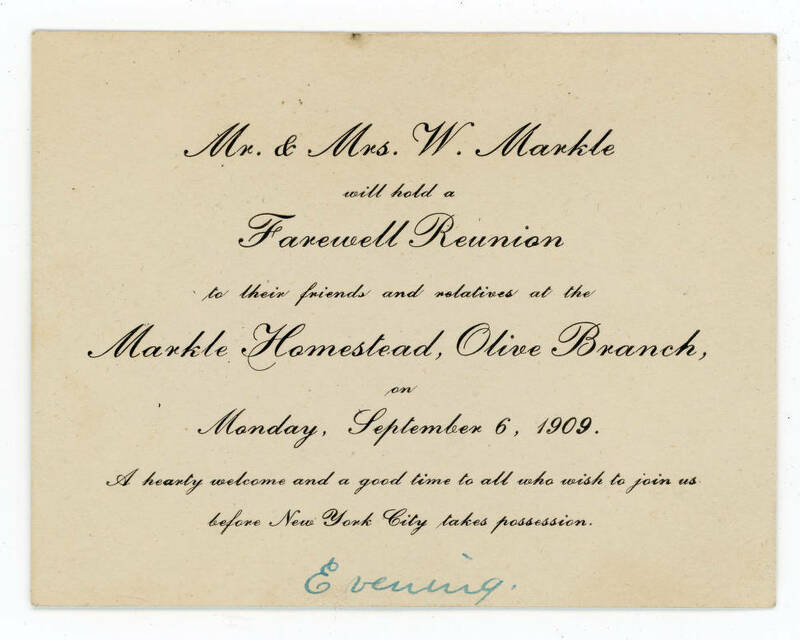 Mr. & Mrs. W. Markle
will hold a
Farewell Reunion
to their friends and relatives at the
Markle Homestead, Olive Branch,
on
Monday, September 6, 1909.
A hearty welcome and a good time to all who wish to join us
before New York City takes possession.
Evening.